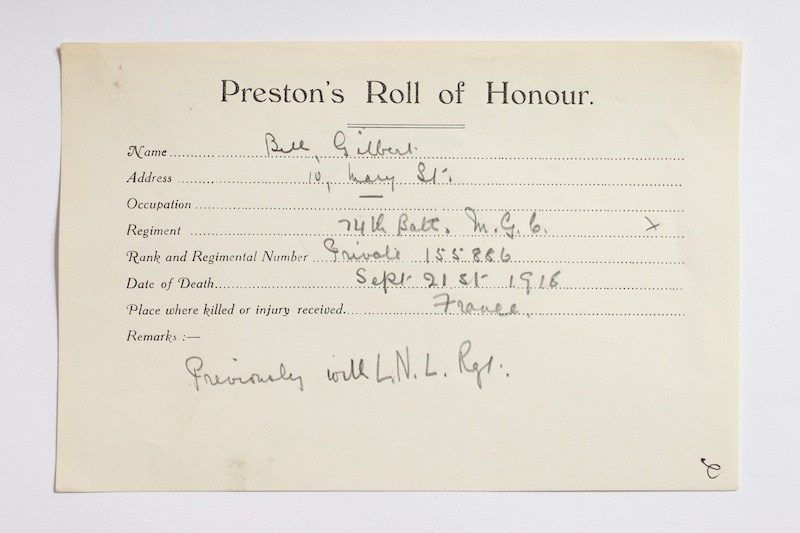 Preston's Roll of Honour.
Name Bell, Gilbert.
Address 10, Mary St.
Occupation —
Regiment 74th Batt. M.G.C. X
Rank and Regimental Number Private 155886
Date of Death Sept 21st 1918
Place where killed or injury received. France.
Remarks :—
Previously with L.N.L. Rgt.